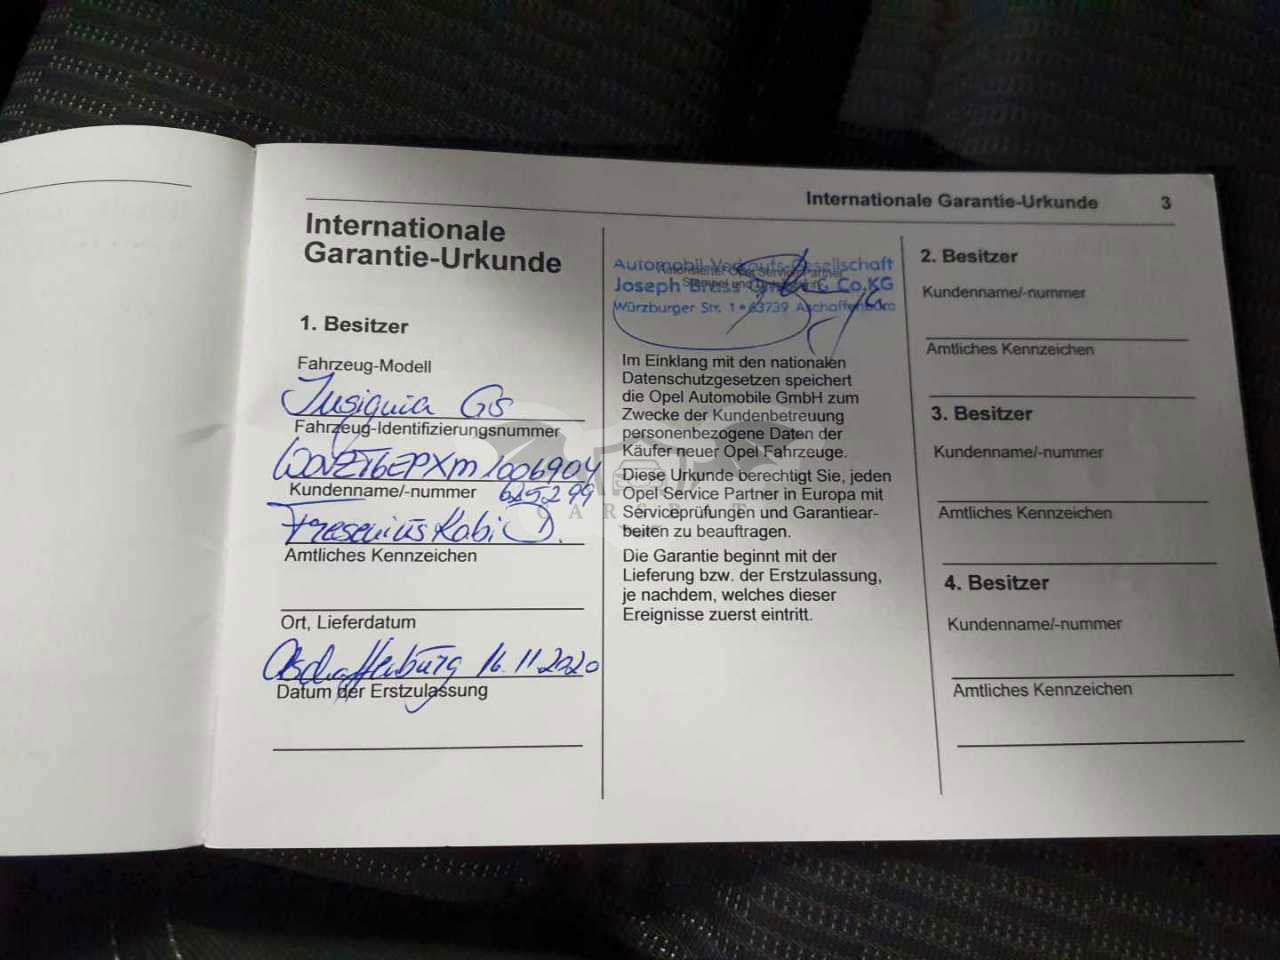 Internationale Garantie-Urkunde 3
Internationale
Garantie-Urkunde
1. Besitzer
Fahrzeug-Modell
Insignia GS
Fahrzeug-Identifizierungsnummer
W0VZT6EPXM1006904
Kundenname/-nummer 625299
Fresenius Kabi D.
Amtliches Kennzeichen
Ort, Lieferdatum
Aschaffenburg 16.11.2020
Datum der Erstzulassung
Automobil-Verkaufs-Gesellschaft
Autorisierter Opel Service Partner
Stempel und
Joseph Brass GmbH & Co.KG
Würzburger Str. 1 • 63739 Aschaffenburg
Im Einklang mit den nationalen
Datenschutzgesetzen speichert
die Opel Automobile GmbH zum
Zwecke der Kundenbetreuung
personenbezogene Daten der
Käufer neuer Opel Fahrzeuge.
Diese Urkunde berechtigt Sie, jeden
Opel Service Partner in Europa mit
Serviceprüfungen und Garantiear-
beiten zu beauftragen.
Die Garantie beginnt mit der
Lieferung bzw. der Erstzulassung,
je nachdem, welches dieser
Ereignisse zuerst eintritt.
2. Besitzer
Kundenname/-nummer
Amtliches Kennzeichen
3. Besitzer
Kundenname/-nummer
Amtliches Kennzeichen
4. Besitzer
Kundenname/-nummer
Amtliches Kennzeichen